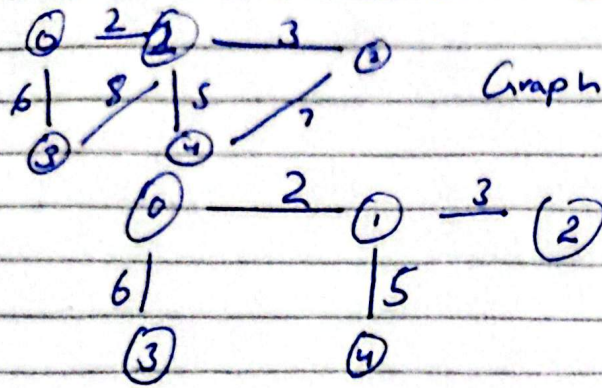 0 2 2 3 2
Graph
6 8 5 7
3 4
0 2 1 3 2
6 5
3 4